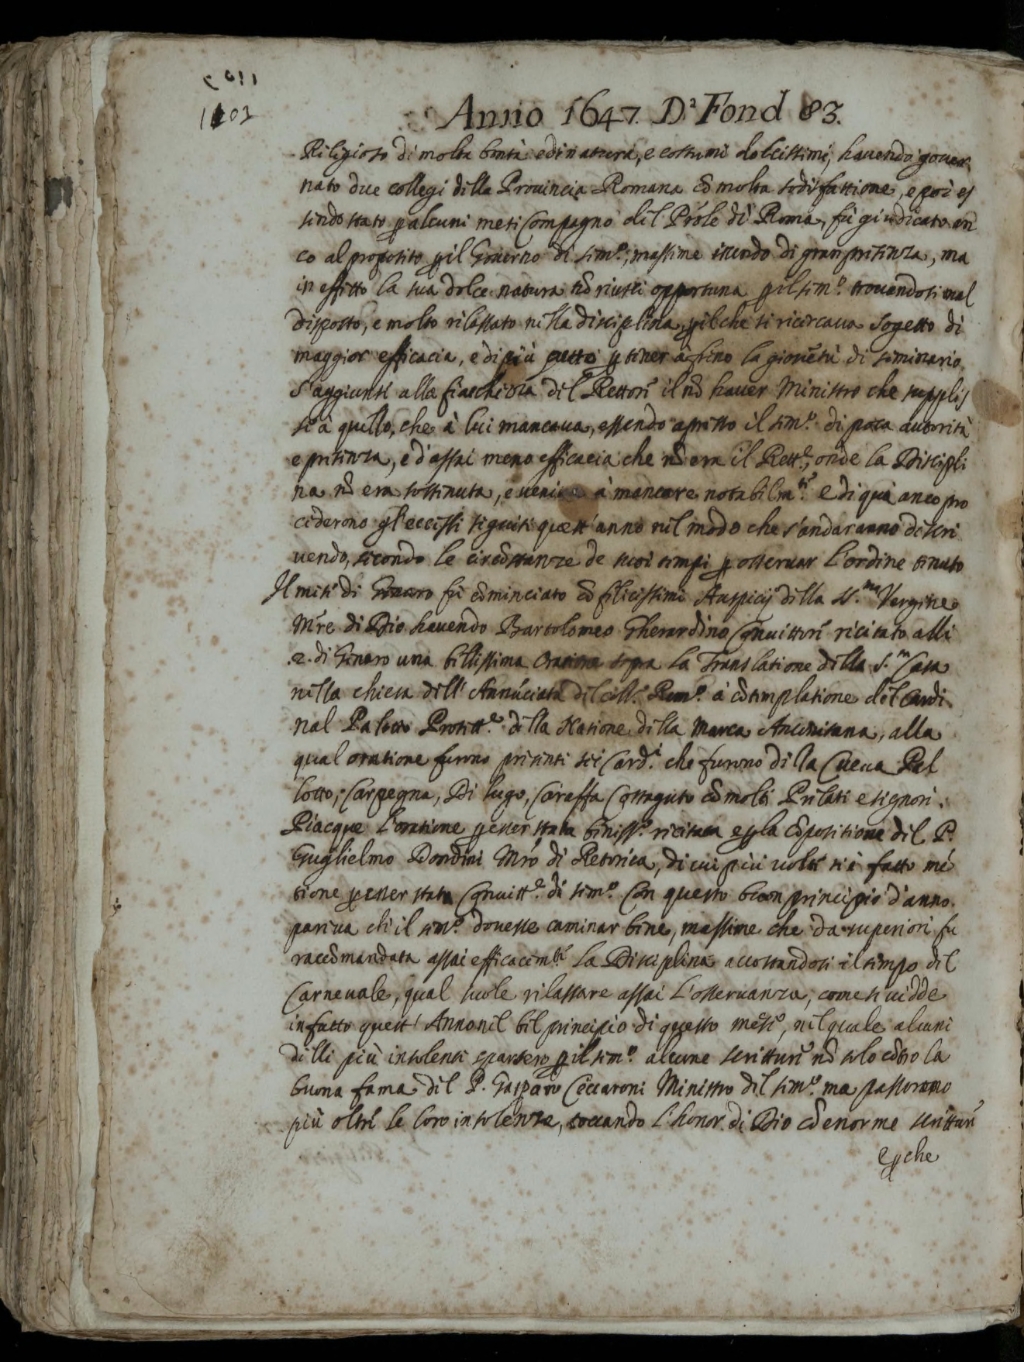 1102
Anno 1647 Dᵃ Fond 83.
Religioso di molta bontà ed in natura, e costumi dolcissimi, havendo gover
nato due collegi della Provincia Romana cō molta sodisfattione, e poi es
sendo stato p alcuni mesi Compagno del P̄role di Roma, fù giudicato an
co al proposito p il Governo di semᵒ, massime essendo di gran presenza, ma
in effetto la sua dolce natura nō riuscì opportuna p il semᵒ trovandosi mal
disposto, e molto rilassato nella disciplina, p il che si ricercava sogetto di
maggior efficacia, e di più petto p tener à freno la gioventù di seminario.
S'aggiunse alla fiacchezza del Rettore il nō haver Ministro che supplis
se à quello, che à lui mancava, essendo apresso il semᵒ di poca autorità
e presenza, e d'assai meno efficacia che nō era il Rettʳᵉ, onde la Discipli
na nō era sostenuta, e veniva à mancare notabilmᵗᵉ e di quà anco pro
cederono gl'eccessi seguiti quest'anno nel modo che s'andaranno descri
vendo, secondo le circōstanze de suoi tempi p osservar l'ordine tenuto
Il mese di Genaro fù cōminciato cō felicissimi Auspicij della SS.ᵐᵃ Vergine
M̄re di Dio havendo Bartolomeo Gherardino Cōvittore recitato alli
2. di Genaro una bellissima Oratione sopra la Translatione della S.ᵗᵃ Casa
nella chiesa dell'Annūciata del Collᵒ Romᵒ à cōtemplatione del Cardi
nal Palotto Protettʳᵉ della Natione della Marca Anconitana, alla
qual oratione furno presenti sei Cardˡⁱ che furono della Cueva Pal
lotto, Carpegna, Di lugo, Caraffa Costaguto cō molti Prelati e signori.
Piacque l'oratione p esser stata benissᵒ recitata e p la cōpositione del P.
Guglielmo Dondini M̄ro di Retorica, di cui più volte si è fatto mē
tione p esser stato Cōvittʳᵉ di semᵒ Con questo buon principio d'anno
pareva che il semᵒ dovesse caminar bene, massime che da superiori fu
raccōmandata assai efficacemᵗᵉ la Disciplina accostandosi il tempo del
Carnevale, qual suole rilassare assai l'osservanza, come si vidde
in fatto quest'Anno nel bel principio di questo mese, nel quale alcuni
delli più insolenti sparsero p il semᵒ alcune scritture nō solo cōtro la
buona fama del P. Gasparo Ceccaroni Ministro del semᵒ ma passorono
più oltre le loro insolenze, toccando l'honor di Dio cō enorme scritture
p che